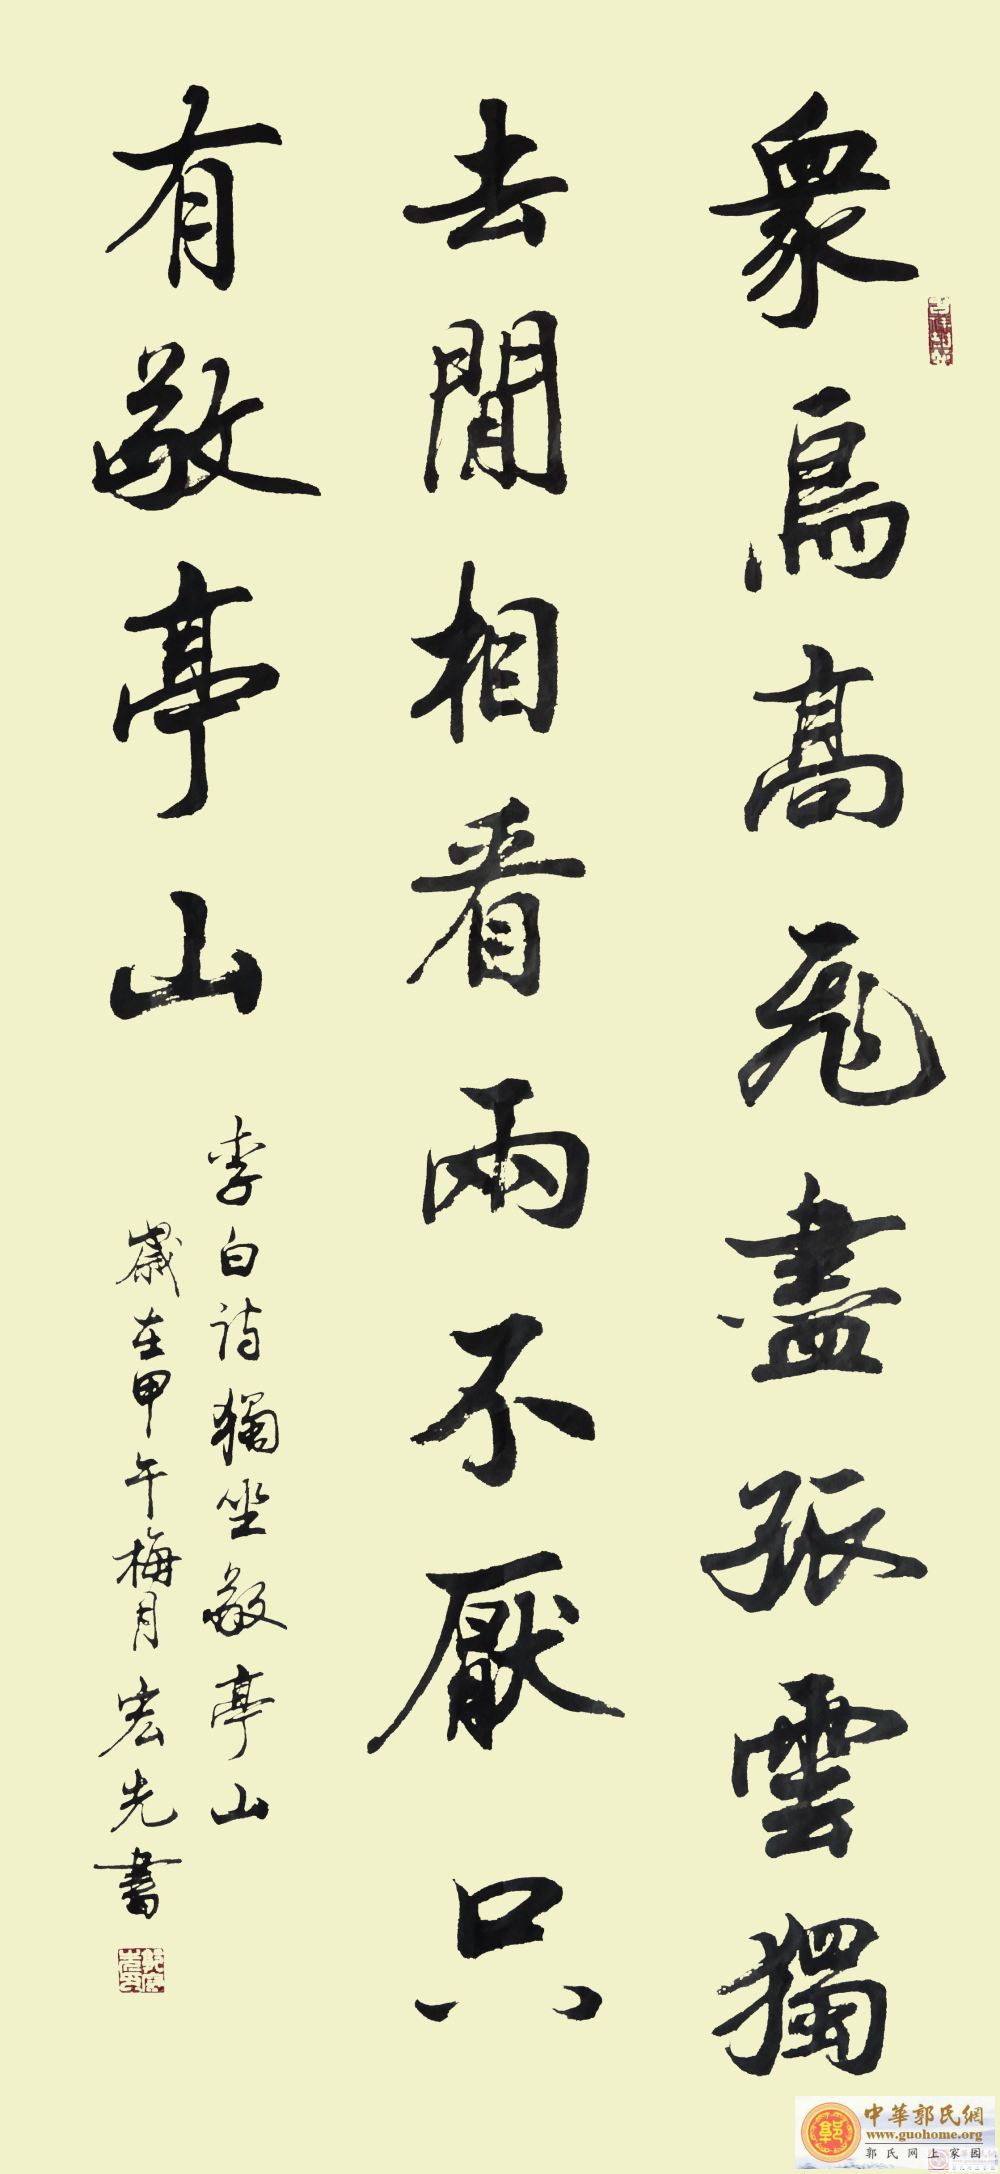 衆鳥高飛盡孤雲獨
去閒相看兩不厭只
有敬亭山
李白詩獨坐敬亭山
歲在甲午梅月宏先書
中華郭氏網
www.guohome.org
郭氏网上家园